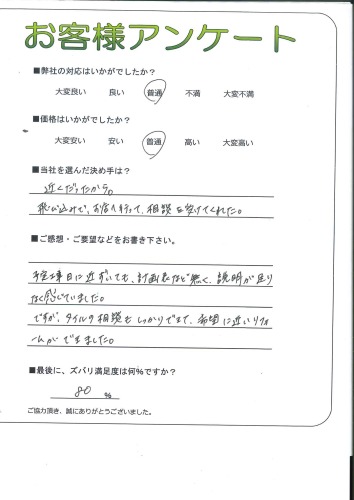 お客様アンケート
■弊社の対応はいかがでしたか？
大変良い 良い 普通 不満 大変不満
■価格はいかがでしたか？
大変安い 安い 普通 高い 大変高い
■当社を選んだ決め手は？
近くだったから。
飛び込みで、お店へ行って、相談を受けてくれた。
■ご感想・ご要望などをお書き下さい。
予定工事日に近ずいても、計画表など無く、説明が足り
なく感じていました。
ですが、タイルの相談もしっかりできて、希望に近いリフォ
ームができました。
■最後に、ズバリ満足度は何%ですか？
80 %
ご協力頂き、誠にありがとうございました。